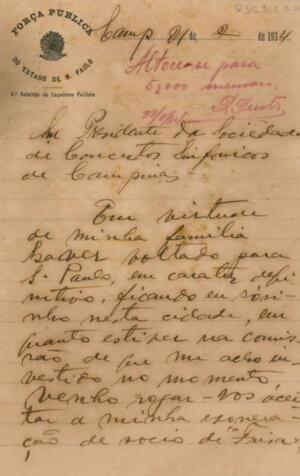 FORÇA PUBLICA
DO ESTADO DE S. PAULO
5.º Batalhão de Caçadores Paulista
Camp 21 de 2 de 1934
Altere-se para
5,000 mensaes.
Snr Presidente da Sociedade
de Concertos Sinfonicos
de Campinas
Em virtude
de minha familia
haver voltado para
S. Paulo, em carater defi-
nitivo, ficando eu sósi-
nho nesta cidade, em-
quanto estiver na comis-
são de que me acho in-
vestido no momento,
venho rogar-vos acei-
tar a minha exonera-
ção de socio de "Frisa"